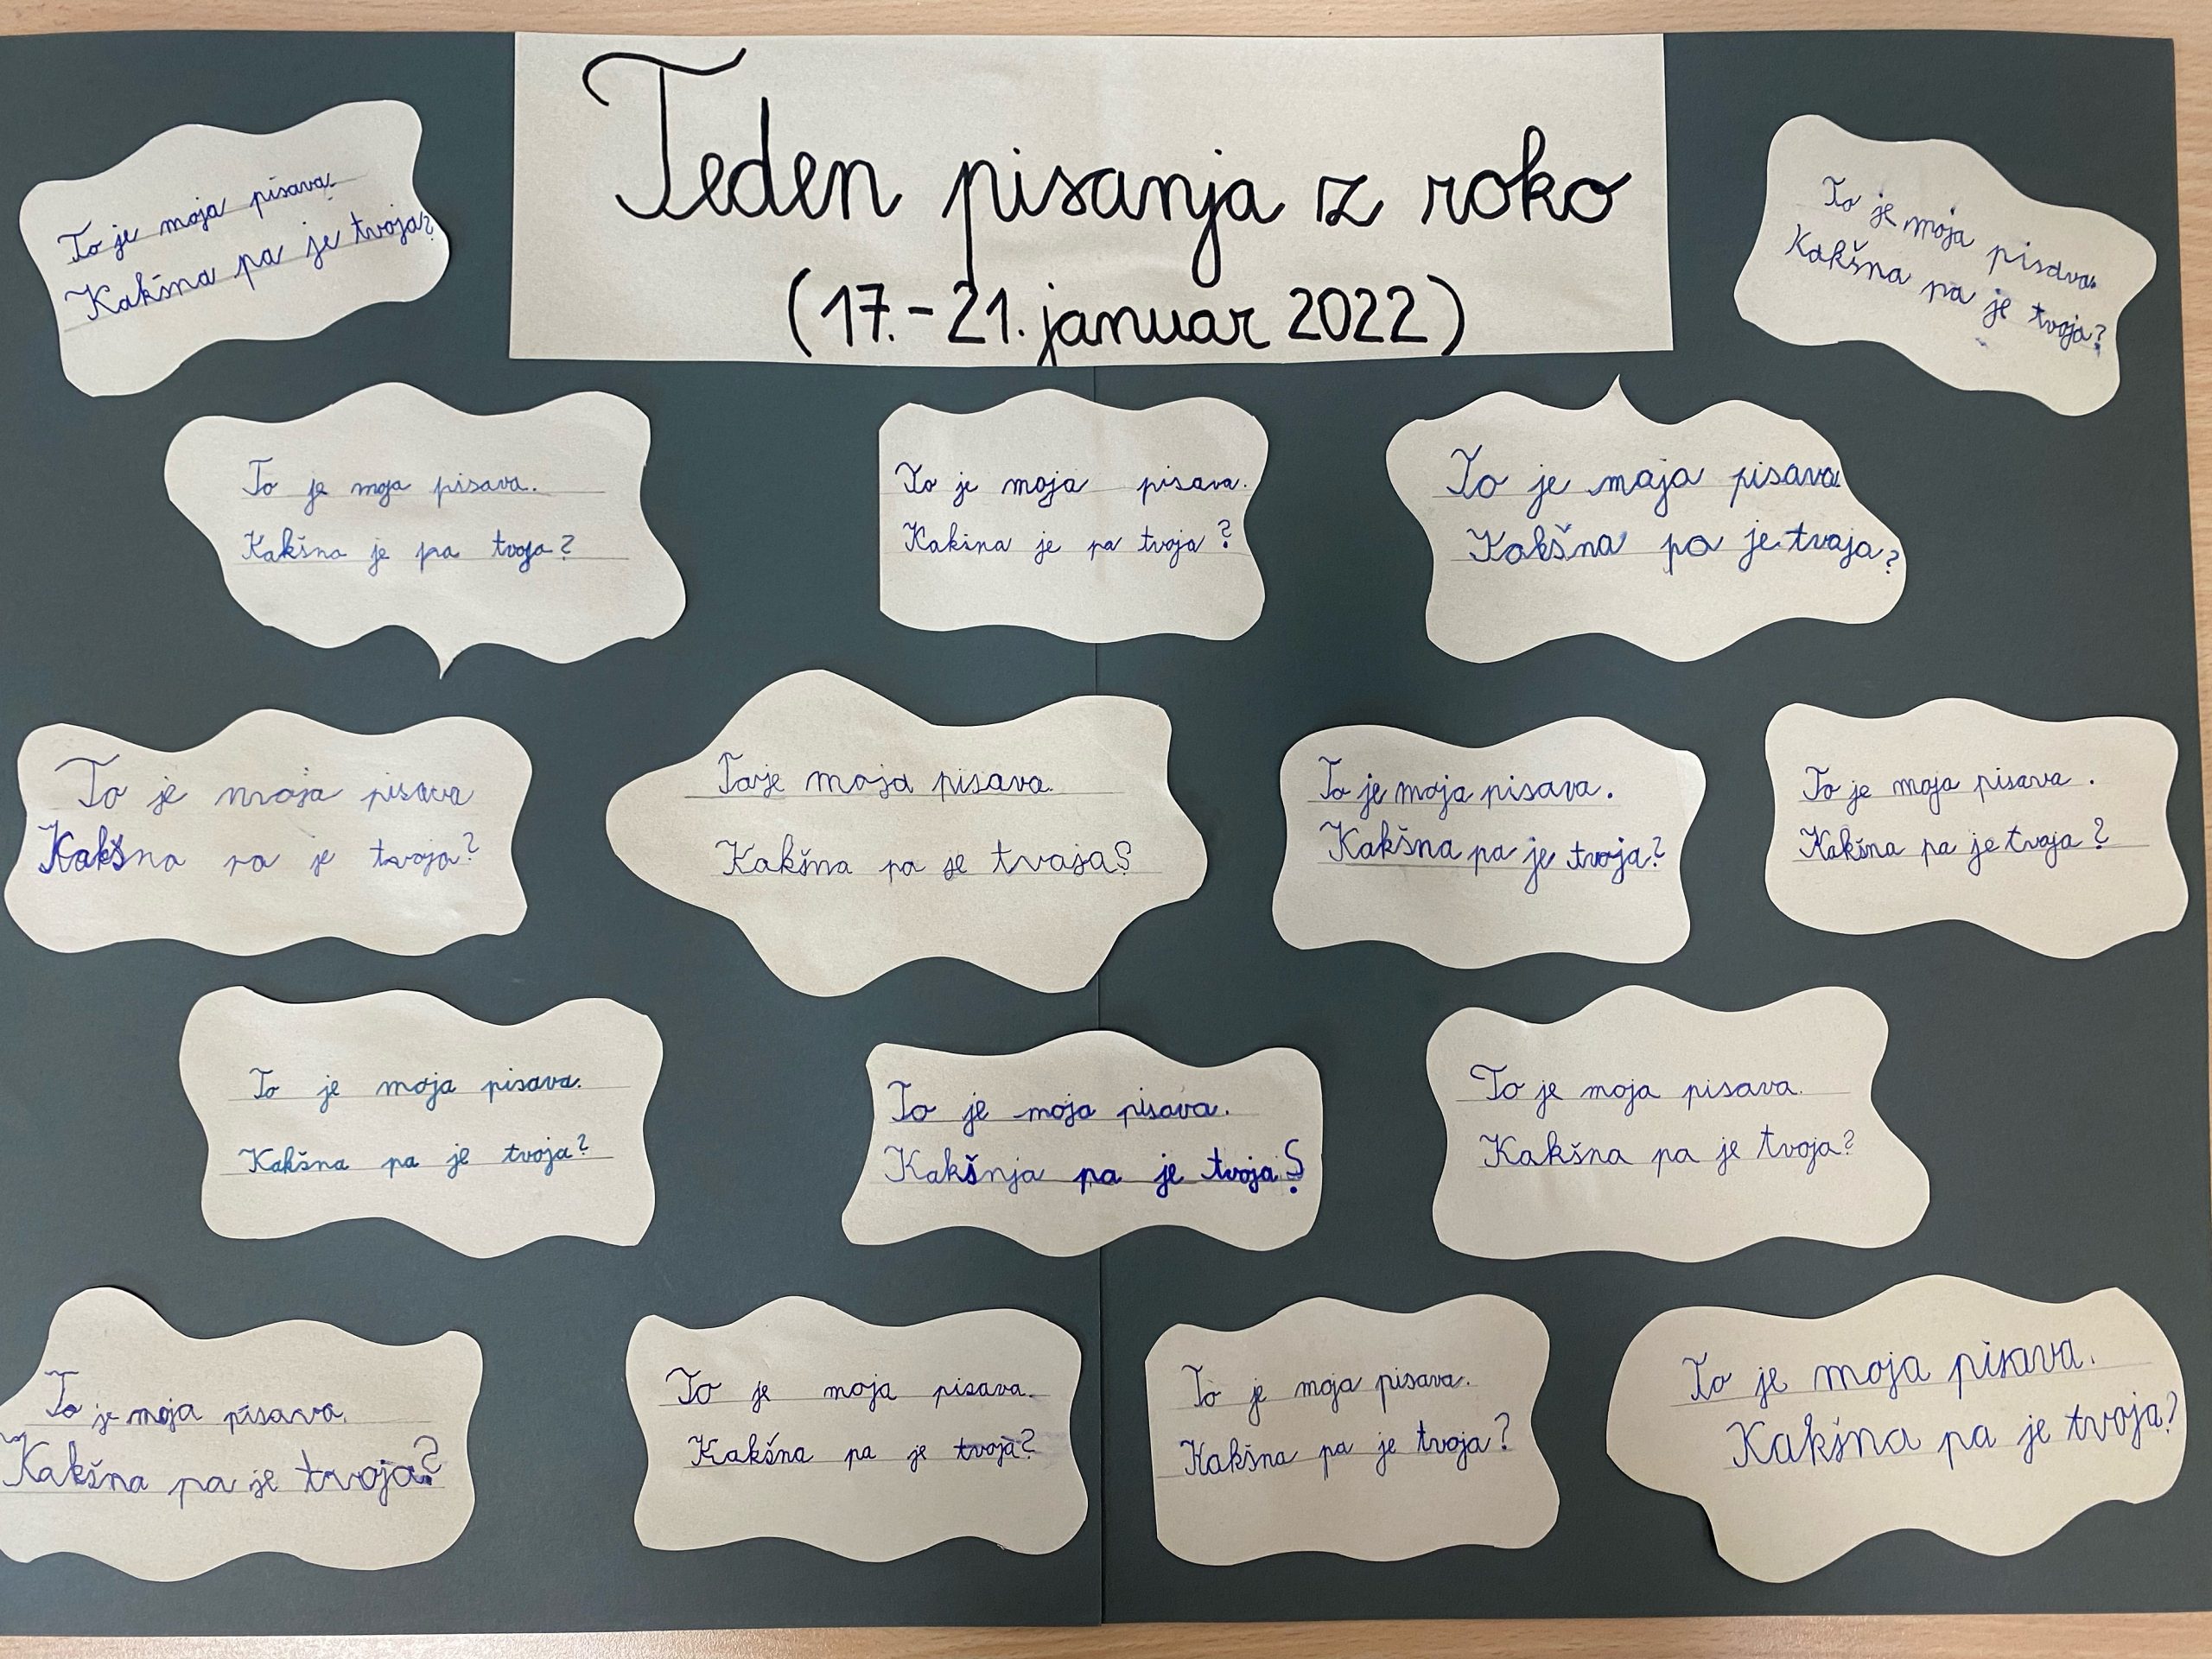 Teden pisanja z roko
(17.-21. januar 2022)
To je moja pisava.
Kakšna pa je tvoja?
To je moja pisava.
Kakšna pa je tvoja?
To je moja pisava.
Kakšna je pa tvoja?
To je moja pisava.
Kakšna je pa tvoja?
To je moja pisava
Kakšna pa je tvoja?
To je moja pisava
Kakšna pa je tvoja?
To je moja pisava.
Kakšna pa je tvoja?
To je moja pisava.
Kakšna pa je tvoja?
To je moja pisava.
Kakšna pa je tvoja?
To je moja pisava.
Kakšna pa je tvoja?
To je moja pisava.
Kakšnja pa je tvoja?
To je moja pisava.
Kakšna pa je tvoja?
To je moja pisava.
Kakšna pa je tvoja?
To je moja pisava.
Kakšna pa je tvoja?
To je moja pisava.
Kakšna pa je tvoja?
To je moja pisava.
Kakšna pa je tvoja?